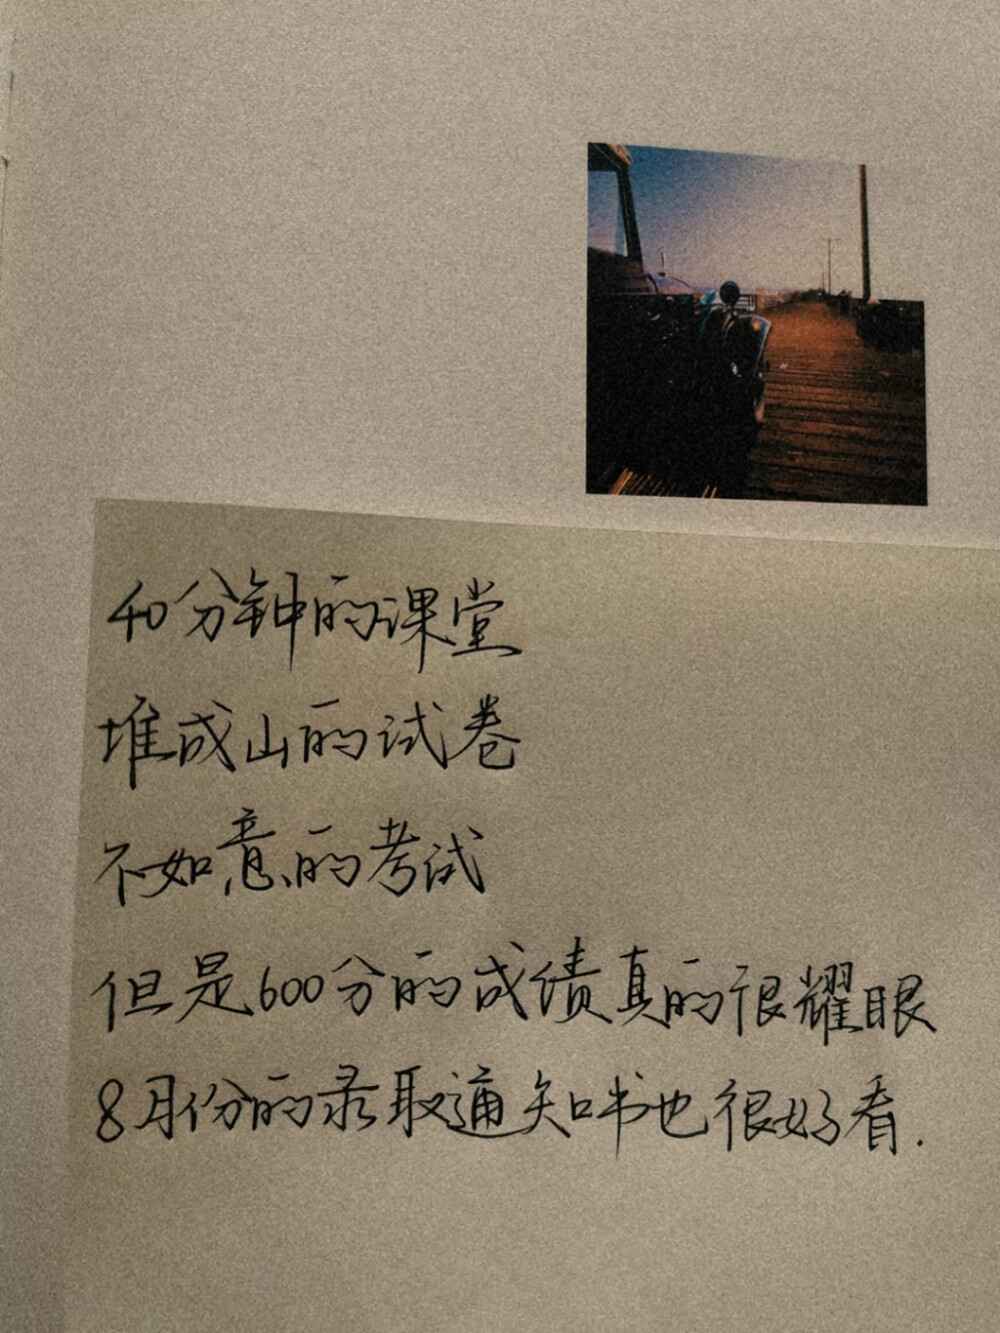 40分钟的课堂
堆成山的试卷
不如意的考试
但是600分的成绩真的很耀眼
8月份的录取通知书也很好看.